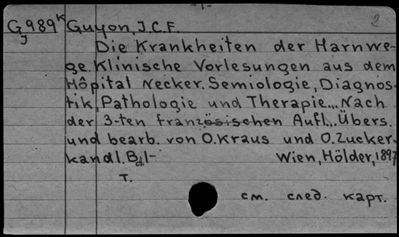 -1-
2
G989K Guyon, J.C.F.
J
Die Krankheiten der Harnwe-
ge. Klinische Vorlesungen aus dem
Hôpital Necker. Semiologie, Diagnos-
tik, Pathologie und Therapie... Nach
der 3-ten französischen Aufl... Übers.
und bearb. von O. Kraus und O. Zucker-
kandl. Bd. I-
Wien, Hölder, 1897
T.
см. след. карт.